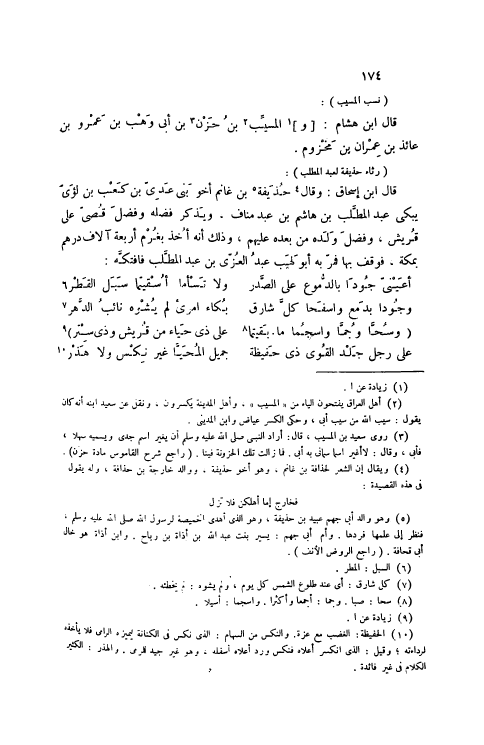 ١٧٤
( نسب المسيب ) :
قال ابن هشام : [ و ]١ المسيَّب٢ بنُ حَزْن٣ بن أبى وَهْب بن عَمْرو بن
عائذ بن عِمْران بن مَخْزوم .
( رثاء حذيفة لعبد المطلب ) :
قال ابن إسحاق : وقال٤ حُذيفة٥ بن غانم أخو بَنى عَدىّ بن كَعْب بن لُؤىّ
يبكى عبد المطَّلب بن هاشم بن عبد مناف . ويَذكر فضله وفضلَ قُصىّ على
قُريش ، وفضلَ ولَده من بعده عليهم ، وذلك أنه أُخذ بغُرْم أربعة آلاف درهم
بمكة . فوقف بها فمرّ به أبو لهب عبدُ العُزّى بن عبد المطَّلب فافتكَّه :
أعَيْنىّ جُودَا بالدُّموع على الصَّدر ولا تَسْأما أُسْقيتما سَبَل القَطْر٦
وجُودا بدَمع واسفَحا كلَّ شارق بُكاء امرئ لم يُشْوه نائبُ الدَّهر٧
( وسُحَّا وجُمَّا واسجُما ما بَقيتما٨ على ذى حَياء من قُريش وذى سِتْر)٩
على رجل جَلْد القُوى ذى حَفيظة جميل المُحيَّا غير نِكْس ولا هَذْر١٠
(١) زيادة عن ا .
(٢) أهل العراق يفتحون الياء من « المسيب » ، وأهل المدينة يكسرون ، ونقل عن سعيد ابنه أنه كان
يقول : سيب الله من سيب أبى ، وحكى الكسر عياض وابن المدينى .
(٣) روى سعيد بن المسيب ، قال : أراد النبى صلى الله عليه وسلم أن يغير اسم جدى ويسميه سهلا ،
فأبى ، وقال : لا أغير اسما سمانى به أبى . فما زالت تلك الحزونة فينا . ( راجع شرح القاموس مادة حزن ) .
(٤) ويقال إن الشعر لحذافة بن غانم ، وهو أخو حذيفة . ووالد خارجة بن حذافة ، وله يقول
فى هذه القصيدة :
فخارج إما أهلكن فلا تزل
(٥) وهو والد أبى جهم عبيد بن حذيفة ، وهو الذى أهدى الخميصة لرسول الله صلى الله عليه وسلم ،
فنظر إلى علمها فردها . وأم أبى جهم : يسير بنت عبد الله بن أذاة بن رياح . وابن أذاة هو خال
أبى قحافة . ( راجع الروض الأنف ) .
(٦) السبل : المطر .
(٧) كل شارق : أى عند طلوع الشمس كل يوم ، ولم يشوه : لم يخطئه .
(٨) سحا : صبا . وجما : أجمعا وأكثرا . واسجما : أسيلا .
(٩) زيادة عن ا .
(١٠) الحفيظة : الغضب مع عزة . والنكس من السهام : الذى نكس فى الكنانة ليميزه الرامى فلا يأخذه
لرداءته ؛ وقيل : الذى انكسر أعلاه فنكس ورد أعلاه أسفله ، وهو غير جيد للرمى . والهذر : الكثير
الكلام فى غير فائدة .